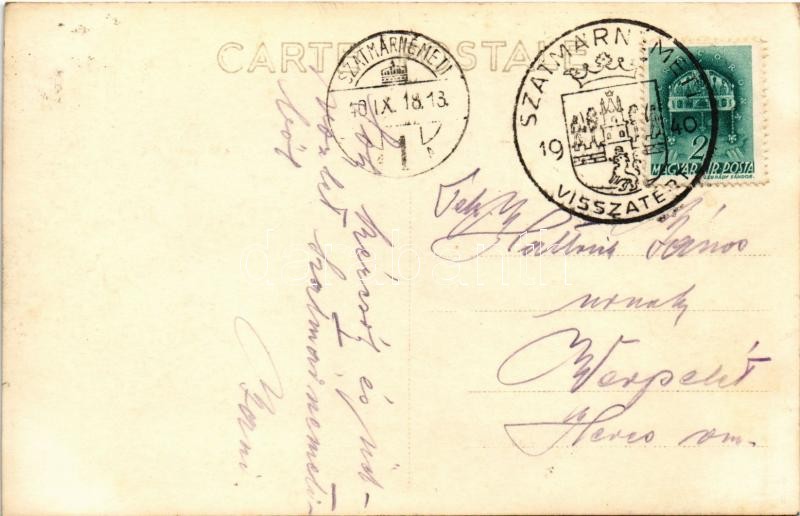 CARTE POSTALE
SZATMÁRNÉMETI
40 IX. 18. 18.
1
SZATMÁRNÉMETI
1940
VISSZATÉRT
2
MAGYAR KIR. POSTA
Tek
János
urnak
Verpelét
Heves vm.
és üd-
vözlet Szatmárnémeti-
ből
Jani.